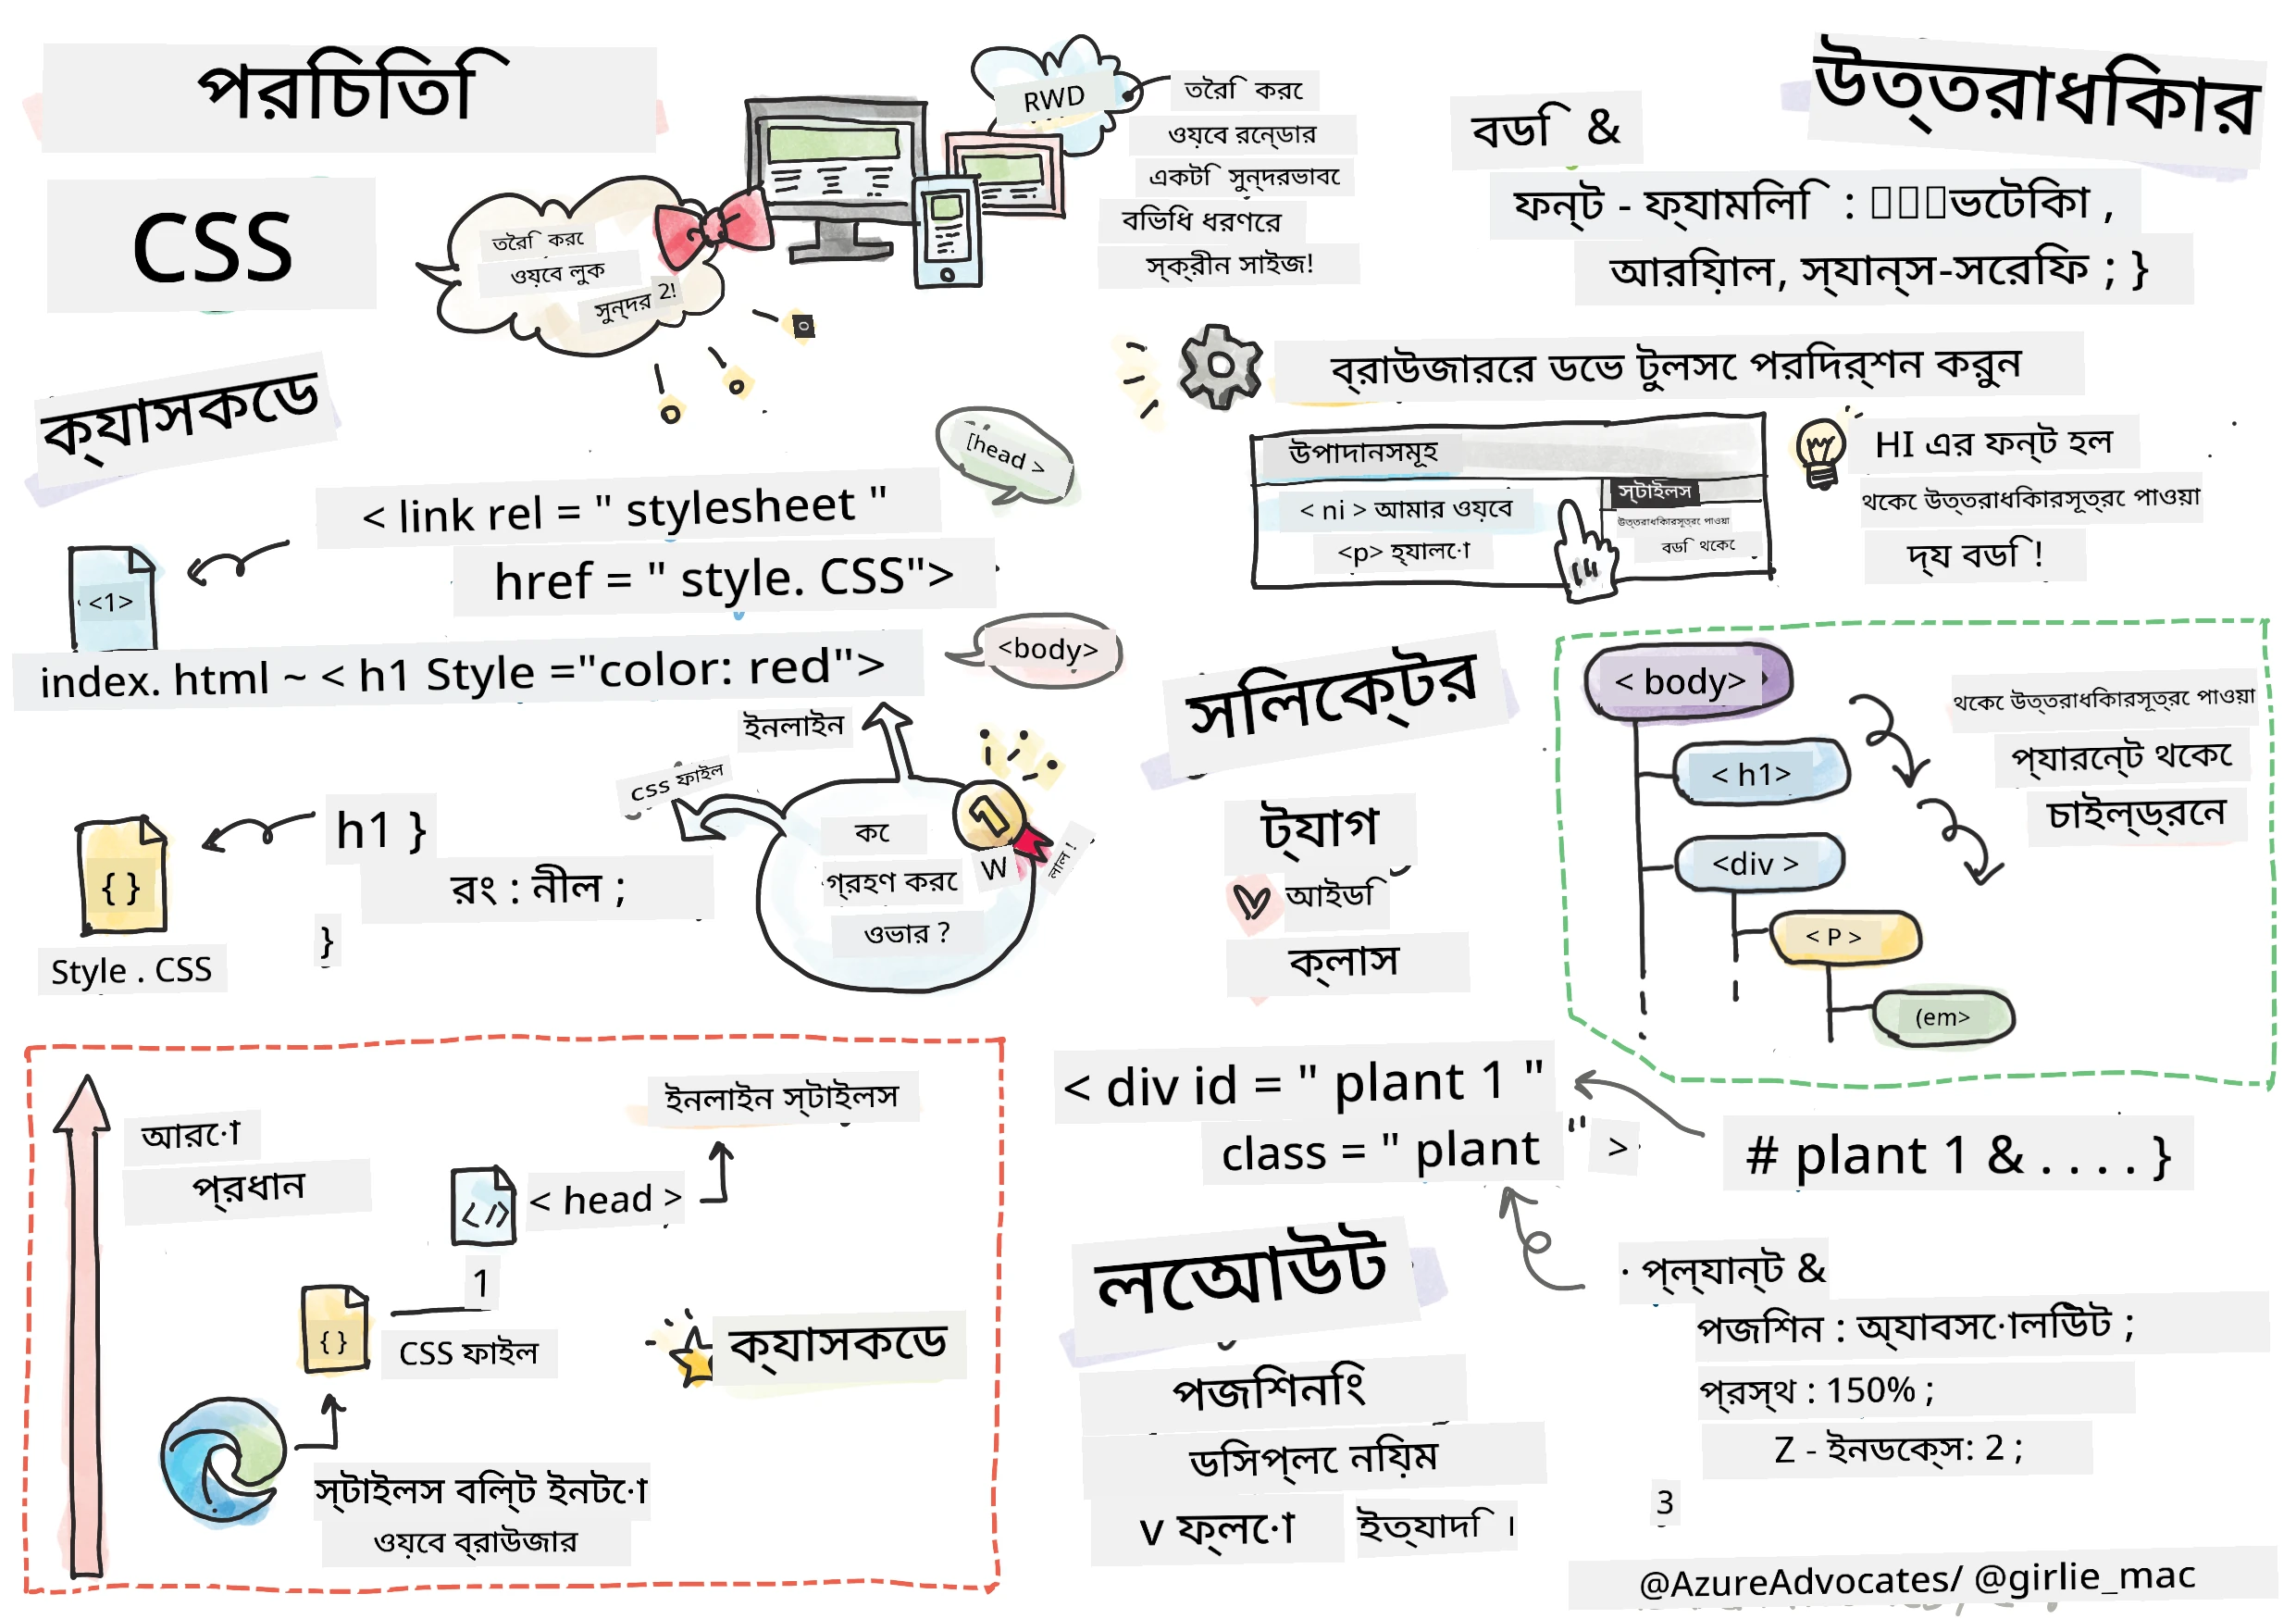 পরিচিতি
CSS
তৈরি করে
ওয়েব লুক
সুন্দর 2!
RWD
তৈরি করে
ওয়েব রেন্ডার
একটি সুন্দরভাবে
বিভিধ ধরণের
স্ক্রীন সাইজ!
উত্তরাধিকার
বডি &
ফন্ট - ফ্যামিলি : ভেটিকা ,
আরিয়াল, স্যান্স-সেরিফ ; }
ব্রাউজারের ডেভ টুলসে পরিদর্শন করুন
উপাদানসমূহ
< ni > আমার ওয়েব
<p> হ্যালো
স্টাইলস
উত্তরাধিকারসূত্রে পাওয়া
বডি থেকে
HI এর ফন্ট হল
থেকে উত্তরাধিকারসূত্রে পাওয়া
দ্য বডি !
ক্যাসকেড
[head >
< link rel = " stylesheet "
href = " style. CSS">
<1>
index. html ~ < h1 Style ="color: red">
<body>
ইনলাইন
css ফাইল
h1 }
রং : নীল ;
}
{ }
Style . CSS
কে
গ্রহণ করে
ওভার ?
1
W
লাল !
সিলেক্টর
ট্যাগ
আইডি
ক্লাস
< body>
< h1>
<div >
< P >
(em>
থেকে উত্তরাধিকারসূত্রে পাওয়া
প্যারেন্ট থেকে
চাইল্ড্রেন
< div id = " plant 1 "
class = " plant " >
# plant 1 & . . . . }
· প্ল্যান্ট &
পজিশন : অ্যাবসোলিউট ;
প্রস্থ : 150% ;
Z - ইনডেক্স: 2 ;
3
লেআউট
পজিশনিং
ডিসপ্লে নিয়ম
v ফ্লো ইত্যাদি ।
আরো
প্রধান
ইনলাইন স্টাইলস
</>
< head >
1
{ }
CSS ফাইল
ক্যাসকেড
স্টাইলস বিল্ট ইনটো
ওয়েব ব্রাউজার
@AzureAdvocates/ @girlie_mac